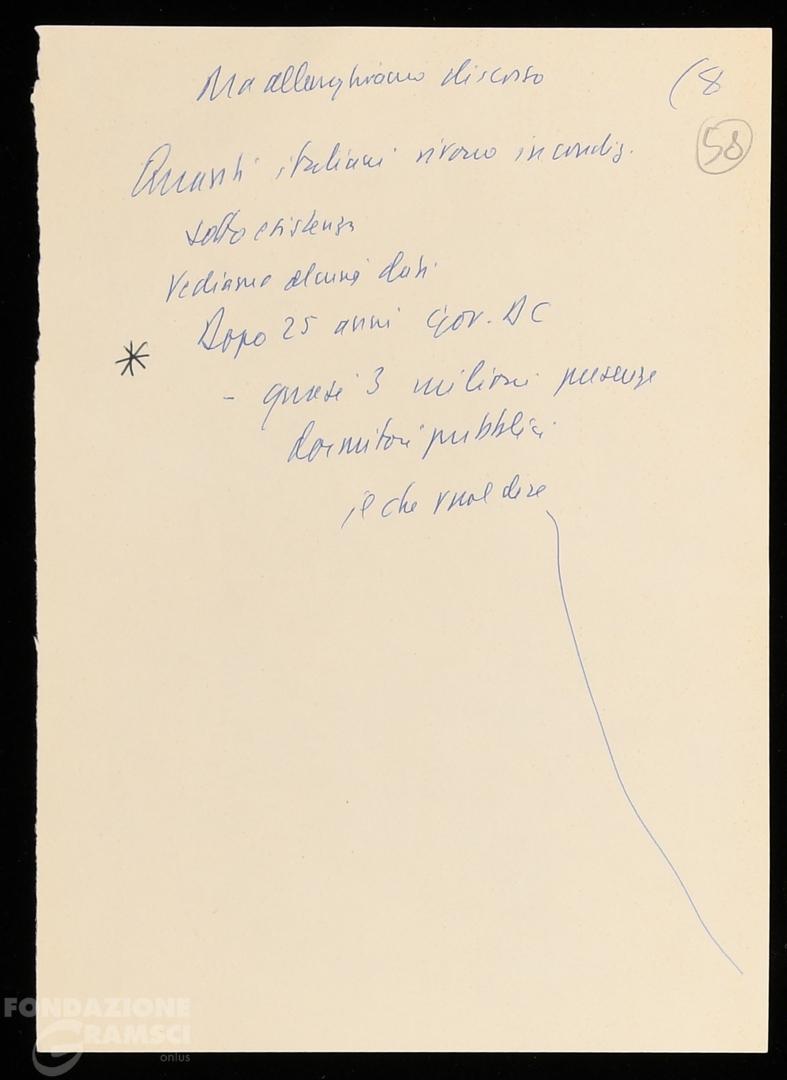 Ma allarghiamo discorso (8
58
Quanti italiani vivono in condiz.
sotto esistenza
Vediamo alcuni dati
Dopo 25 anni gov. DC
*
- quasi 3 milioni presenze
dormitori pubblici
il che vuol dire
FONDAZIONE
GRAMSCI
onlus